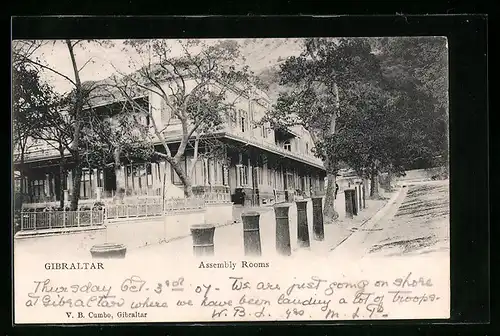 GIBRALTAR
Assembly Rooms
Thursday Oct. 3rd 07. We are just going on shore
at Gibraltar where we have been landing a lot of troops.
V. B. Cumbo, Gibraltar
W. B. L.